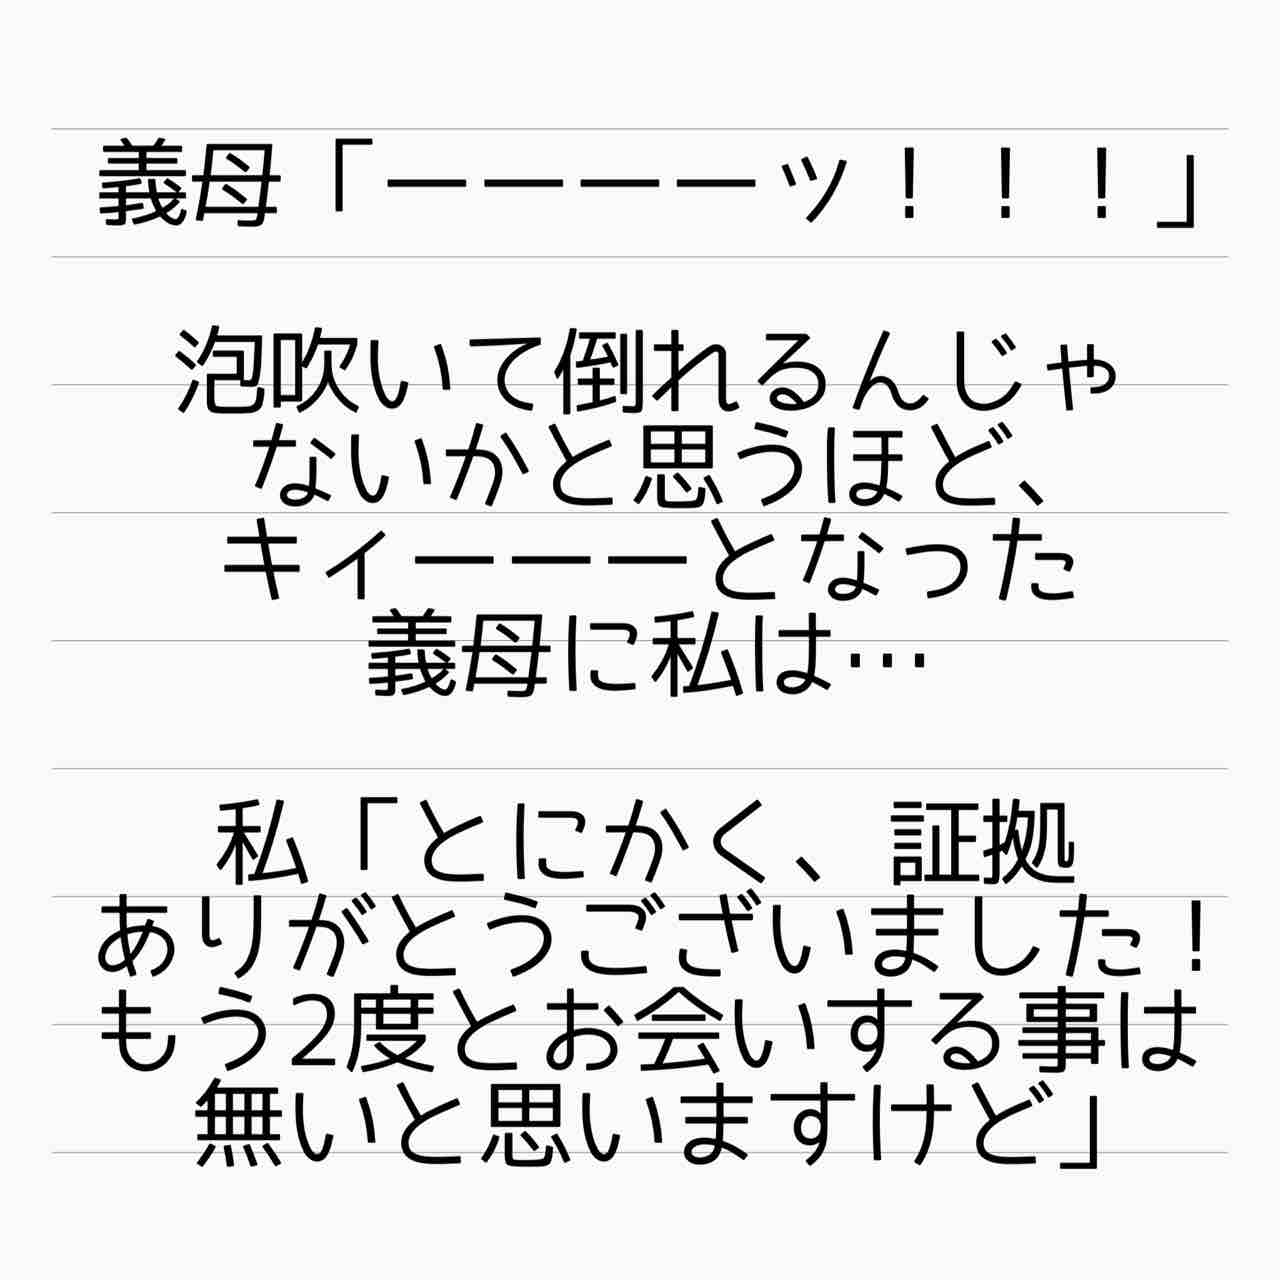 義母「ーーーーッ！！！」
泡吹いて倒れるんじゃ
ないかと思うほど、
キィーーーとなった
義母に私は…
私「とにかく、証拠
ありがとうございました！
もう2度とお会いする事は
無いと思いますけど」